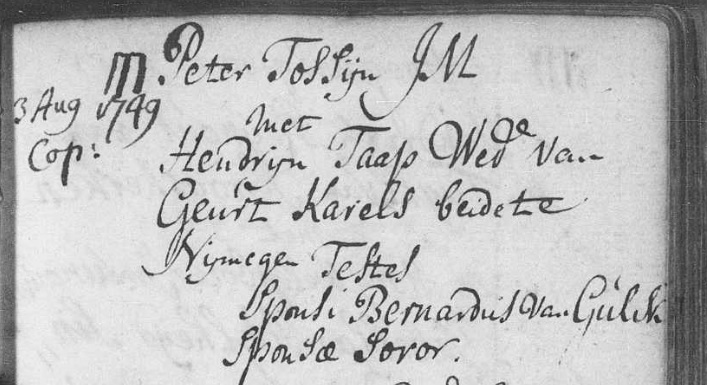 m Peter Tossijn JM
3 Aug 1749
met
Cop: Hendrijn Taap Wed^e van
Geurt Karels beide te
Nijmegen Testes
Sponsi Bernardus van Gulik
Sponsæ Soror.